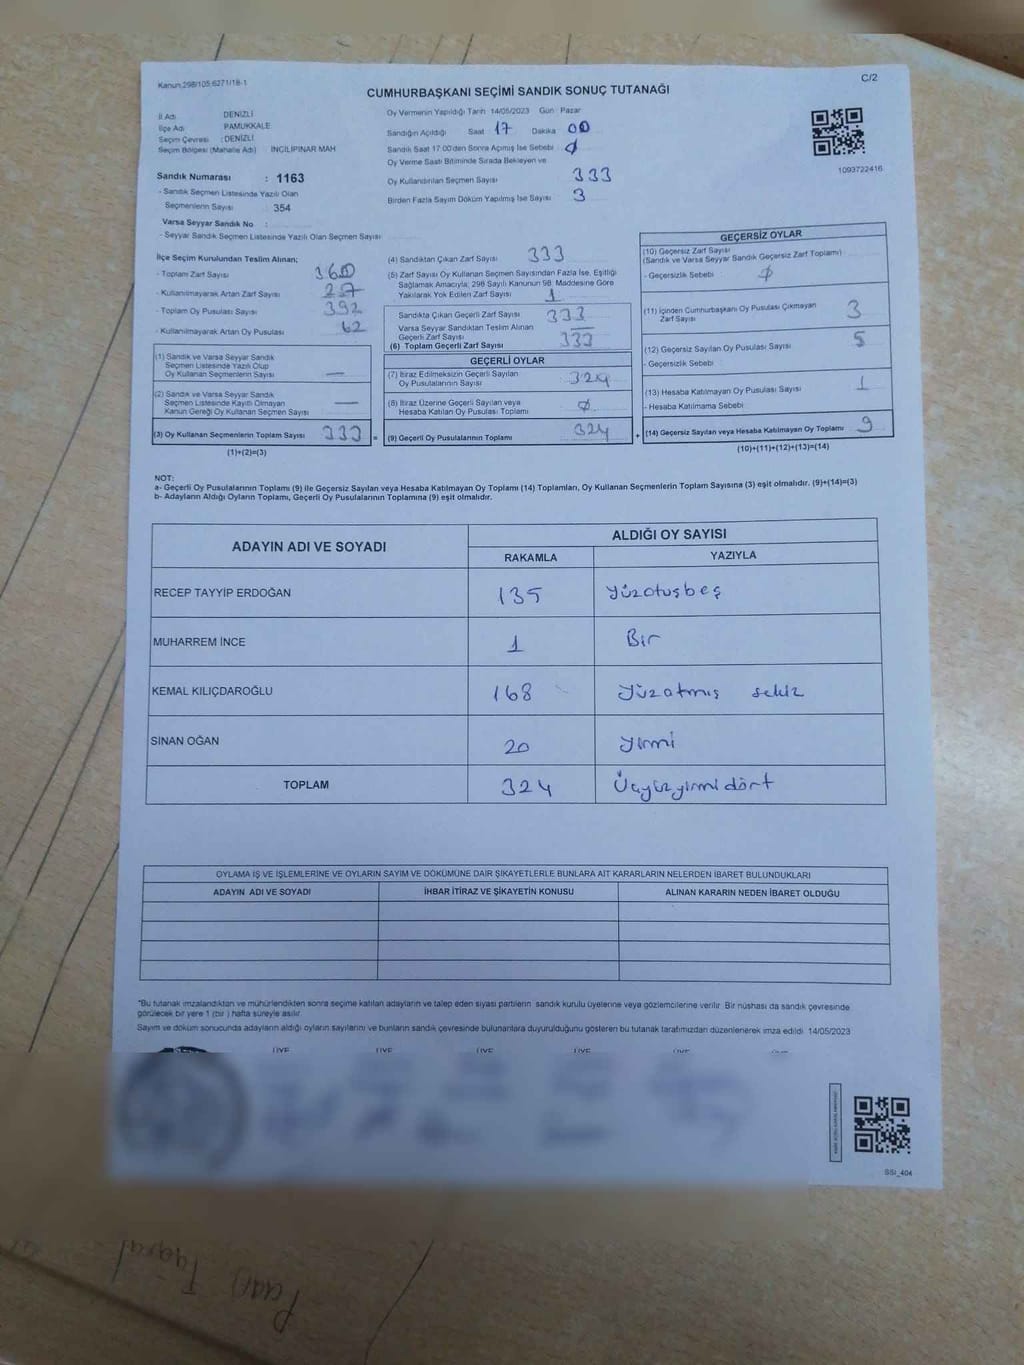 Kanun:298/105.6271/18-1
C/2
CUMHURBAŞKANI SEÇİMİ SANDIK SONUÇ TUTANAĞI
İl Adı : DENİZLİ
İlçe Adı : PAMUKKALE
Seçim Çevresi : DENİZLİ
Seçim Bölgesi (Mahalle Adı) : İNCİLİPINAR MAH
Oy Vermenin Yapıldığı Tarih 14/05/2023 Gün : Pazar
Sandığın Açıldığı Saat 17 Dakika 00
Sandık Saat 17.00'den Sonra Açımış İse Sebebi
Oy Verme Saati Bitiminde Sırada Bekleyen ve
Oy Kullandırılan Seçmen Sayısı 333
Birden Fazla Sayım Döküm Yapılmış İse Sayısı 3
1093722416
Sandık Numarası : 1163
- Sandık Seçmen Listesinde Yazılı Olan
Seçmenlerin Sayısı : 354
Varsa Seyyar Sandık No :
- Seyyar Sandık Seçmen Listesinde Yazılı Olan Seçmen Sayısı
İlçe Seçim Kurulundan Teslim Alınan;
- Toplam Zarf Sayısı 360
- Kullanılmayarak Artan Zarf Sayısı 27
- Toplam Oy Pusulası Sayısı 392
- Kullanılmayarak Artan Oy Pusulası 62
(1) Sandık ve Varsa Seyyar Sandık
Seçmen Listesinde Yazılı Olup
Oy Kullanan Seçmenlerin Sayısı —
(2) Sandık ve Varsa Seyyar Sandık
Seçmen Listesinde Kayıtlı Olmayan
Kanun Gereği Oy Kullanan Seçmen Sayısı —
(3) Oy Kullanan Seçmenlerin Toplam Sayısı 333 =
(1)+(2)=(3)
(4) Sandıktan Çıkan Zarf Sayısı 333
(5) Zarf Sayısı Oy Kullanan Seçmen Sayısından Fazla İse, Eşitliği
Sağlamak Amacıyla; 298 Sayılı Kanunun 98. Maddesine Göre
Yakılarak Yok Edilen Zarf Sayısı 1
Sandıkta Çıkan Geçerli Zarf Sayısı 333
Varsa Seyyar Sandıktan Teslim Alınan
Geçerli Zarf Sayısı —
(6) Toplam Geçerli Zarf Sayısı 333
GEÇERLİ OYLAR
(7) İtiraz Edilmeksizin Geçerli Sayılan
Oy Pusulalarının Sayısı 324
(8) İtiraz Üzerine Geçerli Sayılan veya
Hesaba Katılan Oy Pusulası Toplamı Ø
(9) Geçerli Oy Pusulalarının Toplamı 324 +
GEÇERSİZ OYLAR
(10) Geçersiz Zarf Sayısı
(Sandık ve Varsa Seyyar Sandık Geçersiz Zarf Toplamı)
- Geçersizlik Sebebi Ø
(11) İçinden Cumhurbaşkanı Oy Pusulası Çıkmayan
Zarf Sayısı 3
(12) Geçersiz Sayılan Oy Pusulası Sayısı 5
- Geçersizlik Sebebi
(13) Hesaba Katılmayan Oy Pusulası Sayısı 1
- Hesaba Katılmama Sebebi
(14) Geçersiz Sayılan veya Hesaba Katılmayan Oy Toplamı 9
(10)+(11)+(12)+(13)=(14)
NOT:
a- Geçerli Oy Pusulalarının Toplamı (9) ile Geçersiz Sayılan veya Hesaba Katılmayan Oy Toplamı (14) Toplamları, Oy Kullanan Seçmenlerin Toplam Sayısına (3) eşit olmalıdır. (9)+(14)=(3)
b- Adayların Aldığı Oyların Toplamı, Geçerli Oy Pusulalarının Toplamına (9) eşit olmalıdır.
ADAYIN ADI VE SOYADI
ALDIĞI OY SAYISI
RAKAMLA YAZIYLA
RECEP TAYYİP ERDOĞAN 135 Yüzotuşbeş
MUHARREM İNCE 1 Bir
KEMAL KILIÇDAROĞLU 168 Yüzatmış sekiz
SİNAN OĞAN 20 Yirmi
TOPLAM 324 Üçyüzyirmidört
OYLAMA İŞ VE İŞLEMLERİNE VE OYLARIN SAYIM VE DÖKÜMÜNE DAİR ŞİKAYETLERLE BUNLARA AİT KARARLARIN NELERDEN İBARET BULUNDUKLARI
ADAYIN ADI VE SOYADI İHBAR İTİRAZ VE ŞİKAYETİN KONUSU ALINAN KARARIN NEDEN İBARET OLDUĞU
*Bu tutanak imzalandıktan ve mühürlendikten sonra seçime katılan adayların ve talep eden siyasi partilerin sandık kurulu üyelerine veya gözlemcilerine verilir. Bir nüshası da sandık çevresinde
görülecek bir yere 1 (bir ) hafta süreyle asılır.
Sayım ve döküm sonucunda adayların aldığı oyların sayılarını ve bunların sandık çevresinde bulunanlara duyurulduğunu gösteren bu tutanak tarafımızdan düzenlenerek imza edildi. 14/05/2023
ÜYE ÜYE ÜYE ÜYE ÜYE ÜYE
SSI_404